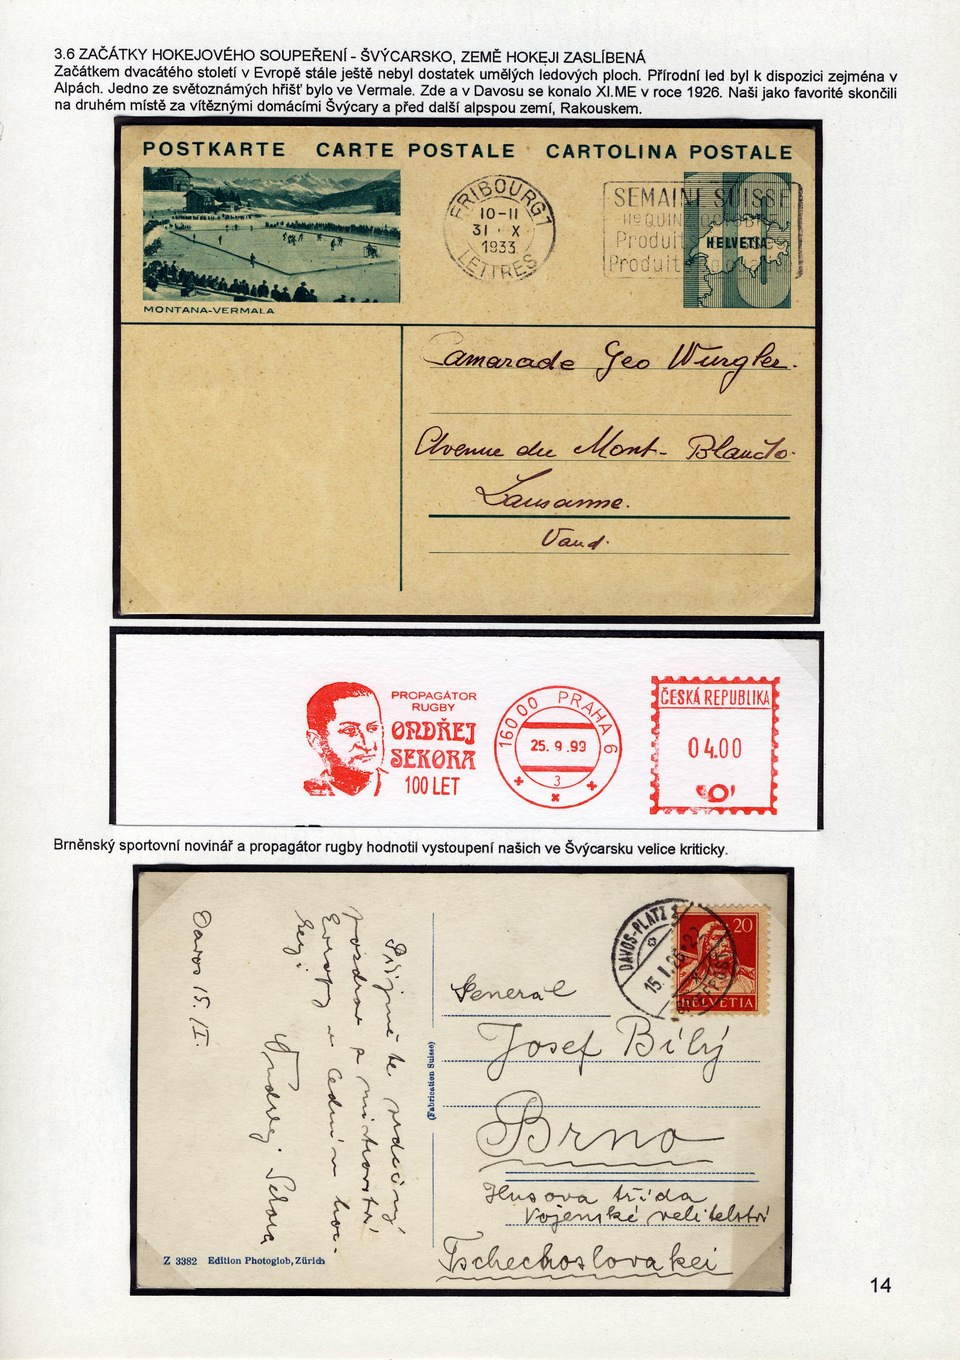 3.6 ZAČÁTKY HOKEJOVÉHO SOUPEŘENÍ - ŠVÝCARSKO, ZEMĚ HOKEJI ZASLÍBENÁ
Začátkem dvacátého století v Evropě stále ještě nebyl dostatek umělých ledových ploch. Přírodní led byl k dispozici zejména v
Alpách. Jedno ze světoznámých hřišť bylo ve Vermale. Zde a v Davosu se konalo XI.ME v roce 1926. Naši jako favorité skončili
na druhém místě za vítěznými domácími Švýcary a před další alpspou zemí, Rakouskem.
POSTKARTE CARTE POSTALE CARTOLINA POSTALE
FRIBOURG 1
10-11
31 · X
1933
LETTRES
SEMAINE SUISSE
Produits
Produits
HELVETIA
10
MONTANA-VERMALA
Camarade Geo Wurgler.
Avenue du Mont-Blanc
Lausanne.
Vaud.
PROPAGÁTOR
RUGBY
ONDŘEJ
SEKORA
100 LET
160 00 PRAHA 6
25. 9. 99
3
ČESKÁ REPUBLIKA
04.00
Brněnský sportovní novinář a propagátor rugby hodnotil vystoupení našich ve Švýcarsku velice kriticky.
Přijměte srdečný
pozdrav z mistrovství
Evropy v ledním hoc-
keyi
Ondřej Sekora
Davos 15./I.
(Fabrication Suisse)
DAVOS-PLATZ 1
15.I.26
20
HELVETIA
Generál
Josef Bílý
Brno
Husova třída
Vojenské velitelství
Tschechoslovakei
Z 3382 Edition Photoglob, Zürich
14